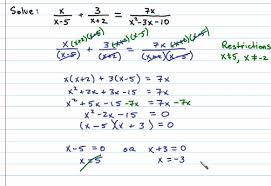 Solve: x/(x-5) + 3/(x+2) = 7x/(x²-3x-10)
x(x+2)(x-5)/(x-5) + 3(x+2)(x-5)/(x+2) = 7x(x+2)(x-5)/((x+2)(x-5))
Restrictions
x≠5, x≠-2
x(x+2) + 3(x-5) = 7x
x²+2x + 3x-15 = 7x
x²+5x-15-7x = 7x-7x
x²-2x-15 = 0
(x-5)(x+3) = 0
x-5=0 OR x+3=0
x=5 x=-3